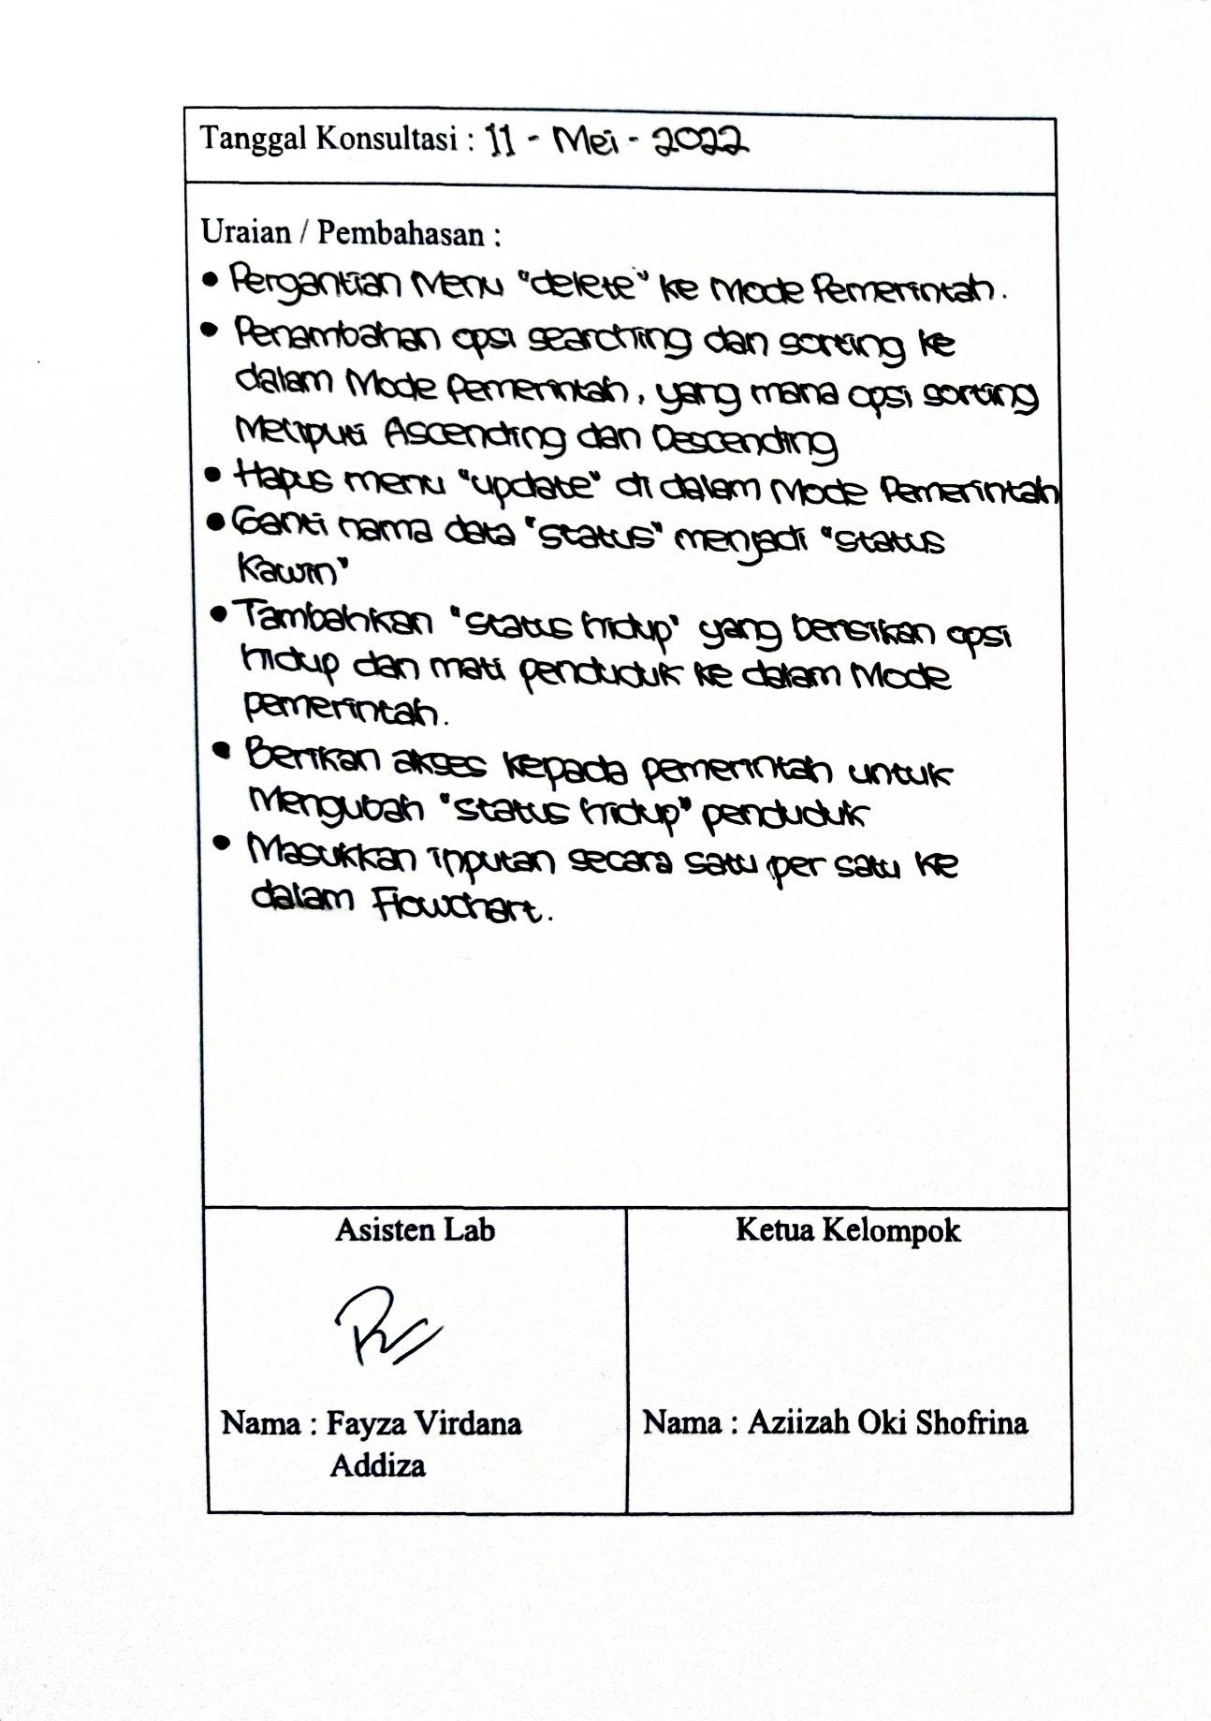 Tanggal Konsultasi : 11 - Mei - 2022
Uraian / Pembahasan :
• Pergantian Menu "delete" ke Mode Pemerintah.
• Penambahan opsi searching dan sorting ke
dalam Mode Pemerintah, yang mana opsi sorting
Meliputi Ascending dan Descending
• Hapus menu "update" di dalam Mode Pemerintah
• Ganti nama data "status" menjadi "status
Kawin"
• Tambahkan "status hidup" yang berisikan opsi
hidup dan mati penduduk ke dalam Mode
pemerintah.
• Berikan akses kepada pemerintah untuk
Mengubah "status hidup" penduduk
• Masukkan inputan secara satu per satu ke
dalam Flowchart.
Asisten Lab
Nama : Fayza Virdana
Addiza
Ketua Kelompok
Nama : Aziizah Oki Shofrina